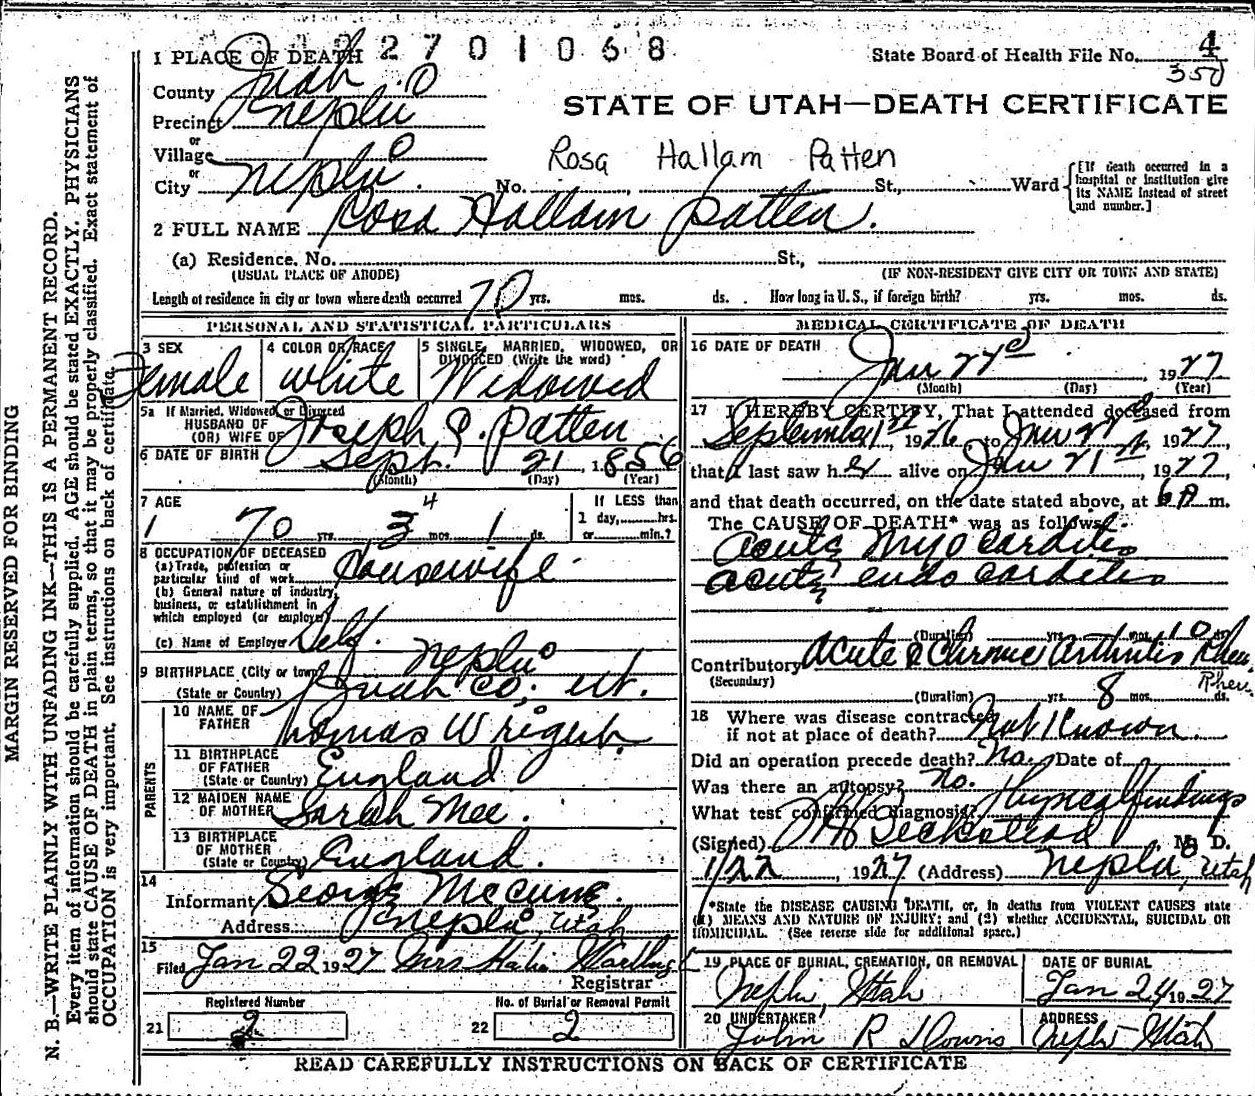 2701068
1 PLACE OF DEATH
State Board of Health File No. 4
350
County Juab
Precinct Nephi
or
Village
or
City Nephi No. St., Ward
[If death occurred in a hospital or institution give its NAME instead of street and number.]
STATE OF UTAH—DEATH CERTIFICATE
Rosa Hallam Patten
2 FULL NAME Rosa Hallam Patten.
(a) Residence. No. St.,
(USUAL PLACE OF ABODE) (IF NON-RESIDENT GIVE CITY OR TOWN AND STATE)
Length of residence in city or town where death occurred 70 yrs. mos. ds. How long in U. S., if foreign birth? yrs. mos. ds.
PERSONAL AND STATISTICAL PARTICULARS
3 SEX
Female
4 COLOR OR RACE
White
5 SINGLE, MARRIED, WIDOWED, OR
DIVORCED (Write the word)
Widowed
5a If Married, Widowed or Divorced
HUSBAND OF
(OR) WIFE OF Joseph Patten
6 DATE OF BIRTH Sept. 21, 1856
(Month) (Day) (Year)
7 AGE 4
1 70 yrs. 3 mos. 1 ds.
If LESS than
1 day, hrs.
or min.?
8 OCCUPATION OF DECEASED
(a) Trade, profession or
particular kind of work Housewife
(b) General nature of industry,
business, or establishment in
which employed (or employer)
(c) Name of Employer Self.
9 BIRTHPLACE (City or town) Nephi
(State or Country) Juab Co, Ut.
10 NAME OF
FATHER Thomas Wright
11 BIRTHPLACE
OF FATHER
(State or Country) England
12 MAIDEN NAME
OF MOTHER Sarah Mee.
13 BIRTHPLACE
OF MOTHER
(State or Country) England.
PARENTS
14
Informant George McCune
Address Nephi, Utah
15
Filed Jan 22 1927 Mrs
Registrar
Registered Number
21 2
No. of Burial or Removal Permit
22 2
MEDICAL CERTIFICATE OF DEATH
16 DATE OF DEATH
Jan 22d, 1927
(Month) (Day) (Year)
17 I HEREBY CERTIFY, That I attended deceased from
September 1st 1926 to Jan 22nd, 1927
that I last saw her alive on Jan 21st, 1927,
and that death occurred, on the date stated above, at 6 A m.
The CAUSE OF DEATH* was as follows:
Acute Myocarditis
acute endocarditis
(Duration) yrs. mos. 10 ds.
Contributory Acute & Chronic Arthritis Rheu.
(Secondary) Rheu.
(Duration) yrs. 8 mos. ds.
18 Where was disease contracted
if not at place of death? Not Known.
Did an operation precede death? No. Date of
Was there an autopsy? No.
What test confirmed diagnosis? Physical findings
(Signed) Beckstead, M. D.
1/22, 1927 (Address) Nephi, Utah
*State the DISEASE CAUSING DEATH, or, in deaths from VIOLENT CAUSES state
(1) MEANS AND NATURE OF INJURY; and (2) whether ACCIDENTAL, SUICIDAL OR
HOMICIDAL. (See reverse side for additional space.)
19 PLACE OF BURIAL, CREMATION, OR REMOVAL
Nephi, Utah
DATE OF BURIAL
Jan 24 1927
20 UNDERTAKER
John R Downs
ADDRESS
Nephi Utah
READ CAREFULLY INSTRUCTIONS ON BACK OF CERTIFICATE
MARGIN RESERVED FOR BINDING
N. B.—WRITE PLAINLY WITH UNFADING INK—THIS IS A PERMANENT RECORD.
Every item of information should be carefully supplied. AGE should be stated EXACTLY. PHYSICIANS
should state CAUSE OF DEATH in plain terms, so that it may be properly classified. Exact statement of
OCCUPATION is very important. See instructions on back of certificate.